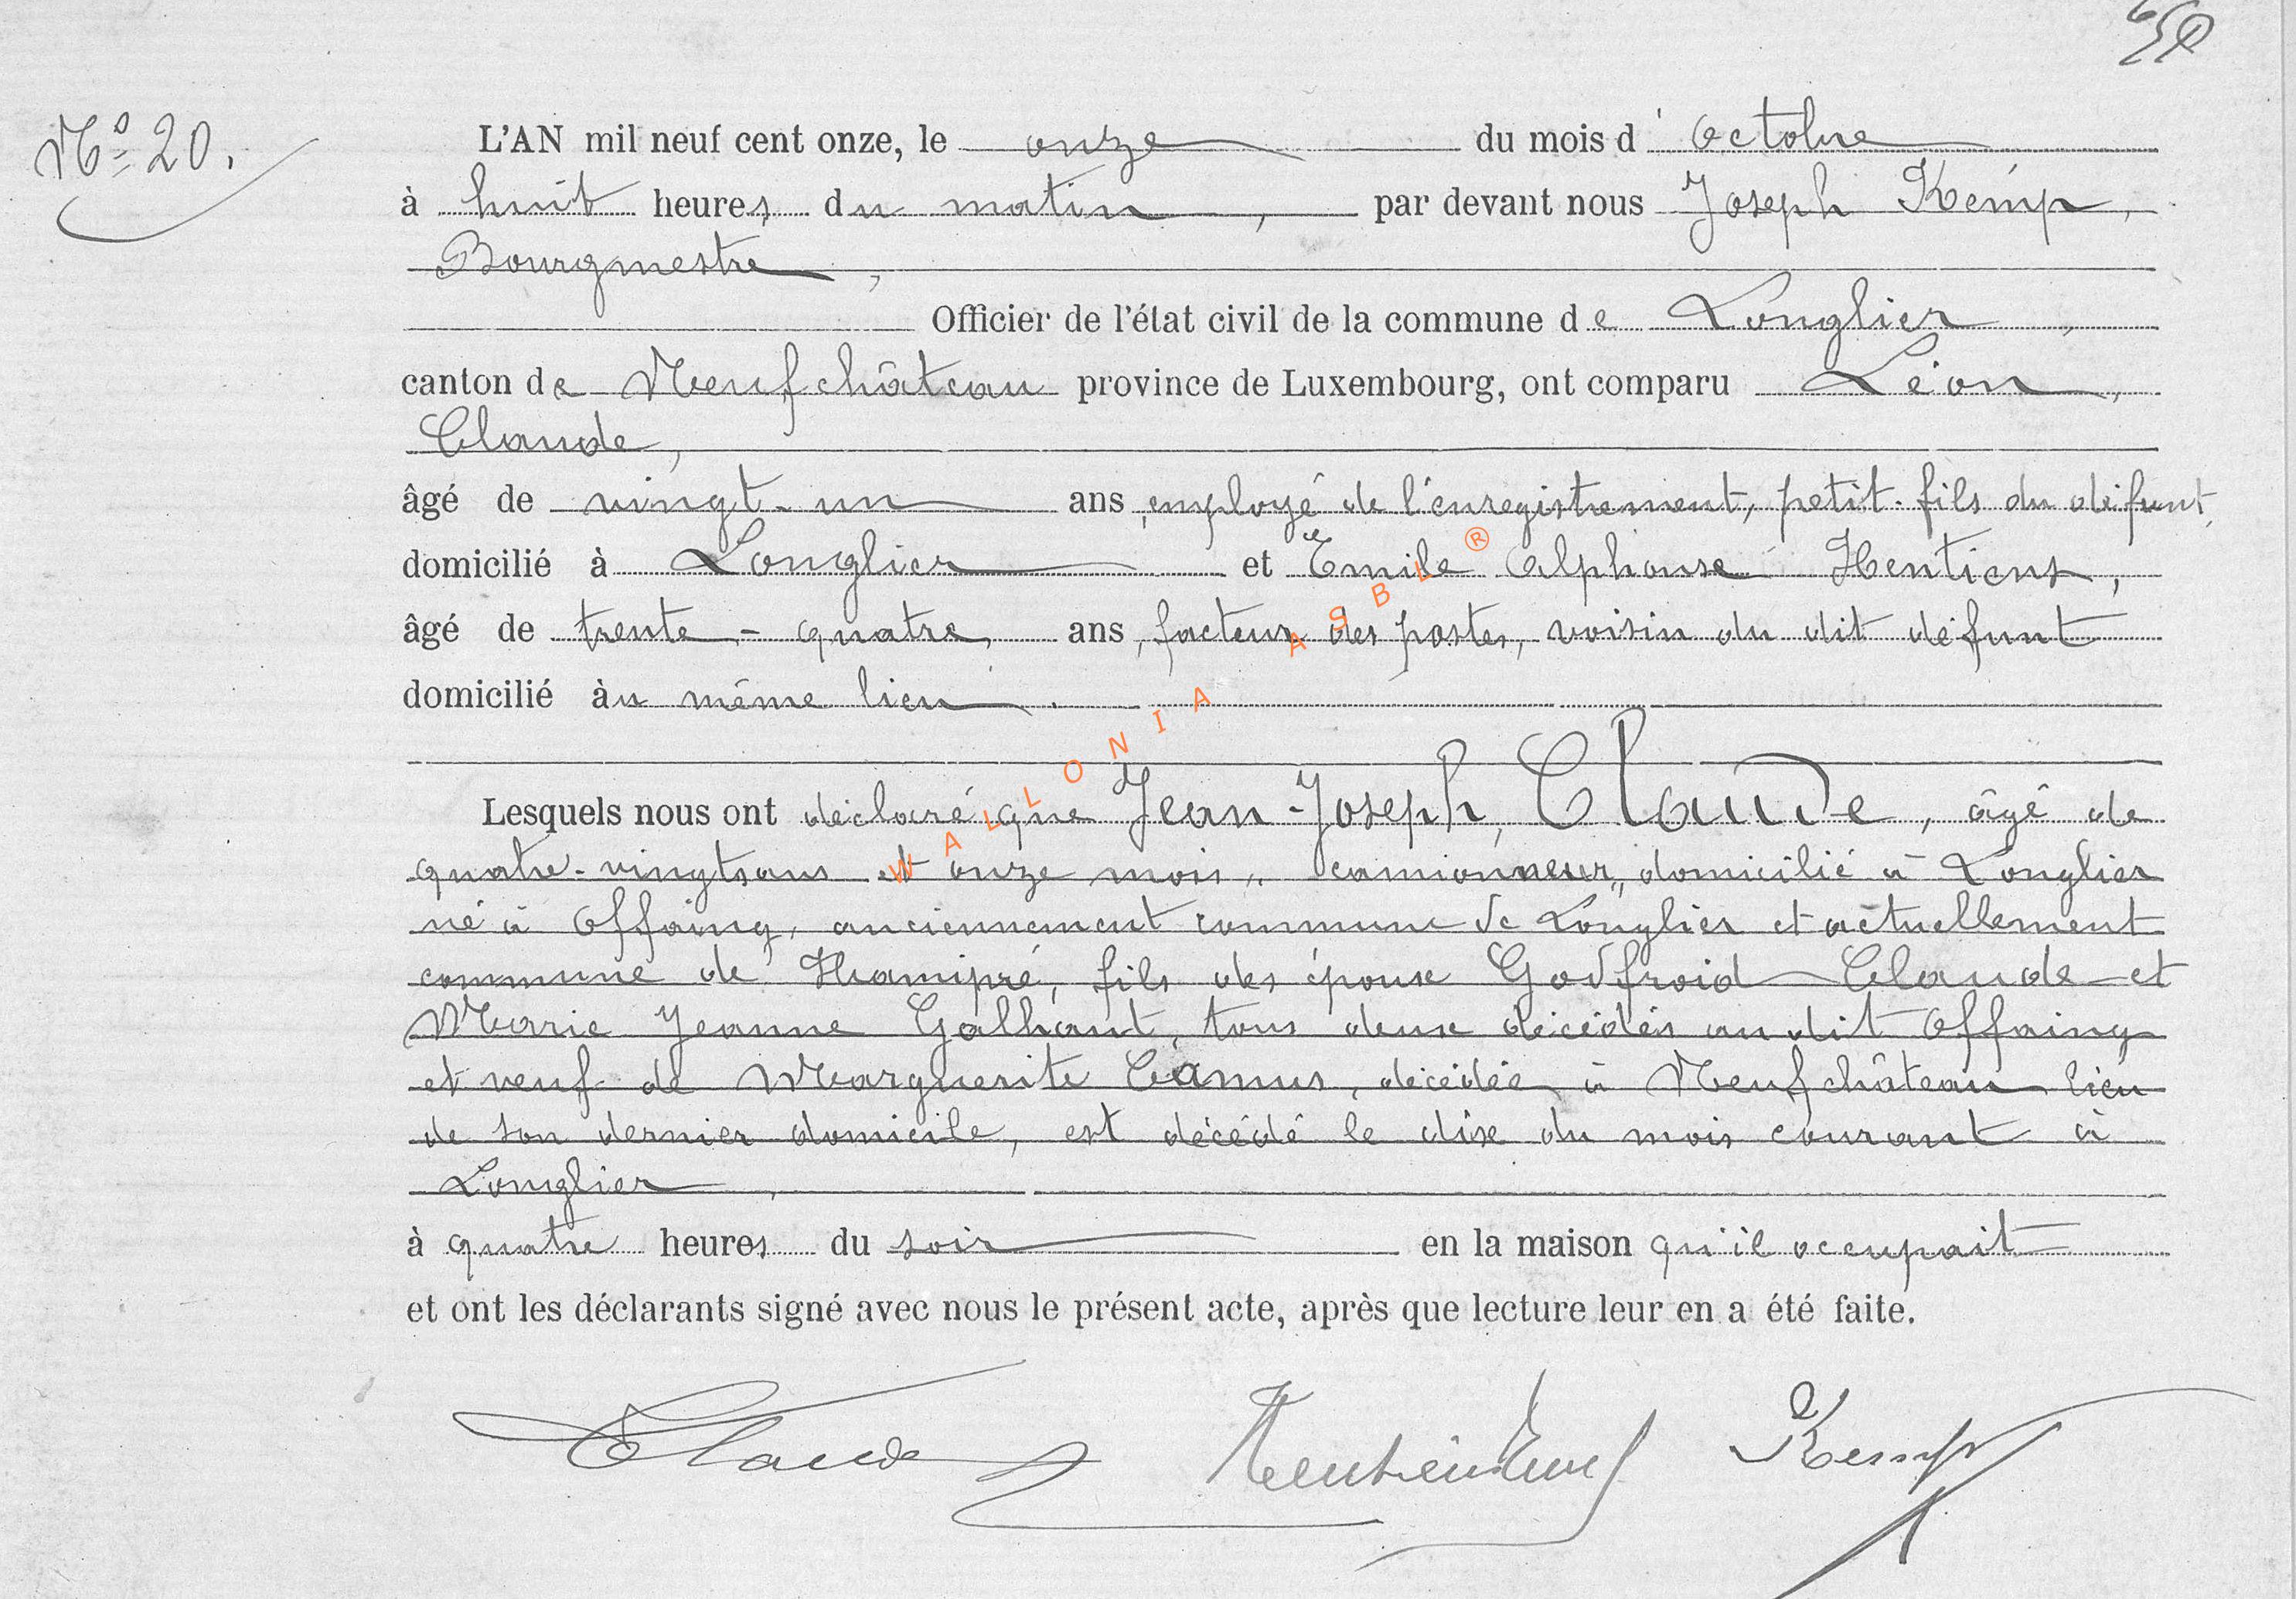 Nº 20.
L'AN mil neuf cent onze, le onze du mois d'octobre
à huit heures du matin, par devant nous Joseph Kemp,
Bourgmestre,
Officier de l'état civil de la commune de Longlier,
canton de Neufchâteau province de Luxembourg, ont comparu Léon,
Claude,
âgé de vingt-un ans, employé de l'enregistrement, petit-fils du défunt,
domicilié à Longlier et Emile Alphonse Hentiens,
âgé de trente-quatre ans, facteur des postes, voisin du dit défunt
domicilié àu même lieu.
Lesquels nous ont déclaré que Jean-Joseph, Claude, âgé de
quatre-vingts ans et onze mois, camionneur, domicilié à Longlier
né à Offaing, anciennement commune de Longlier et actuellement
commune de Hamipré, fils des époux Godfroid Claude et
Marie Jeanne Galhaut, tous deux décédés au dit Offaing
et veuf de Marguerite Camus, décédée à Neufchâteau lieu
de son dernier domicile, est décédé le dix du mois courant à
Longlier,
à quatre heures du soir en la maison qu'il occupait
et ont les déclarants signé avec nous le présent acte, après que lecture leur en a été faite.
Claude Kemp
WALLONIA ASBL ®